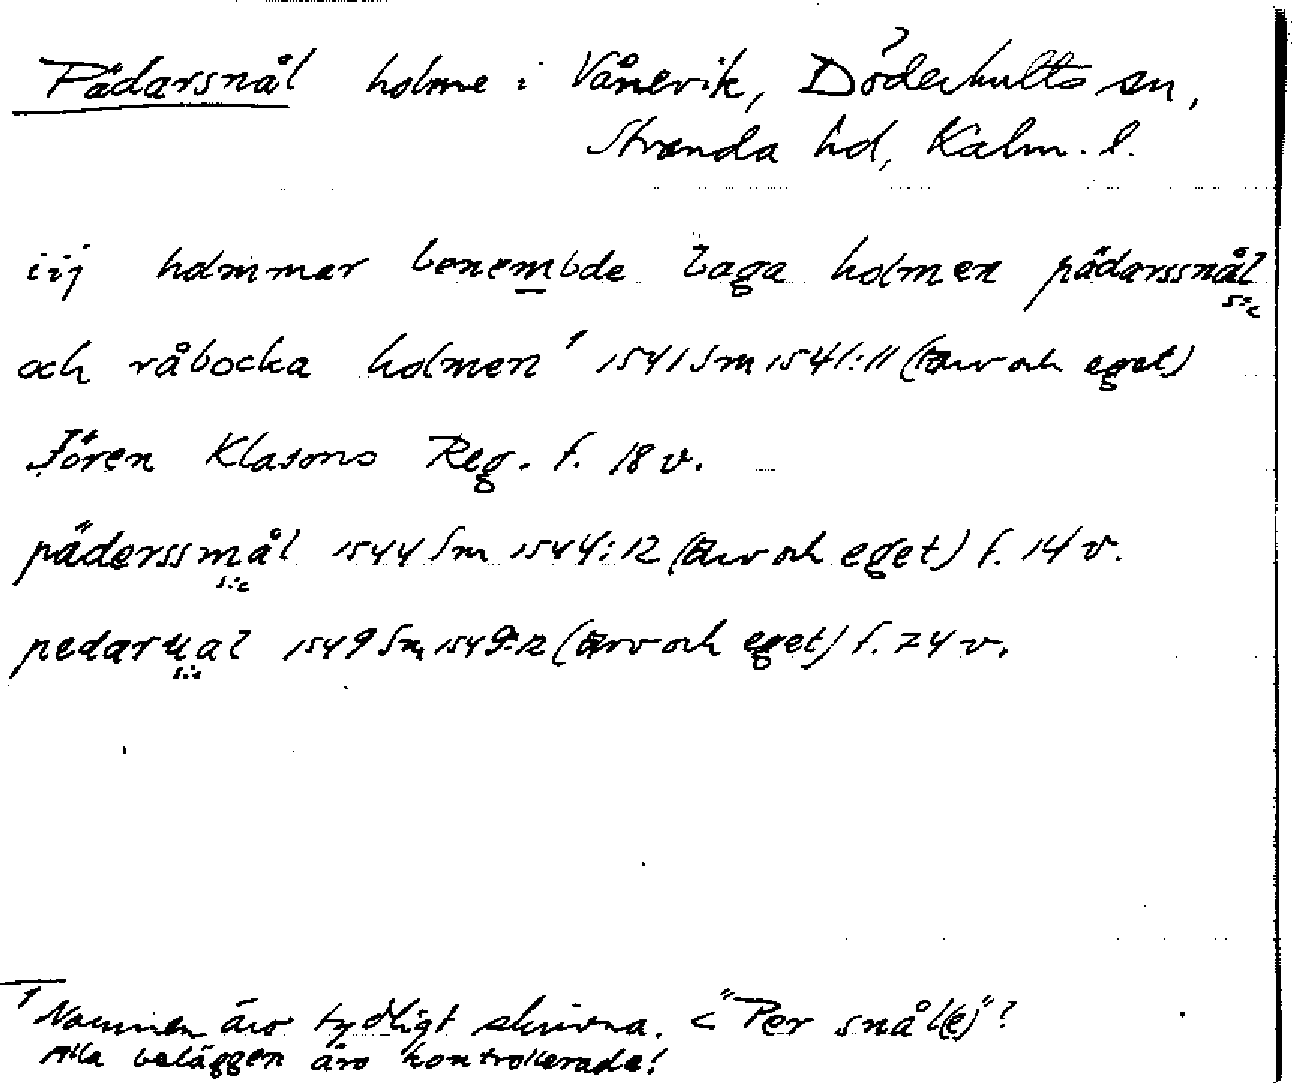 Pädarsnål holme i Vånevik, Döderhults sn,
?
Stranda hd, Kalm. l.
iij holmmar benembde Laga holmen pädarssnål
sic
och råbocka holmen¹ 1541 Sm 1541:11 (Arv och eget)
Jören Klasons Reg. f. 18 v.
päderssmål 1544 Sm 1544:12 (Arv och eget) f. 14 v.
sic
pedarual 1549 Sm 1549:12 (Arv och eget) f. 24 v.
sic
¹ Namnen äro tydligt skrivna. < "Per snål(e)"?
Alla beläggen äro kontrollerade!